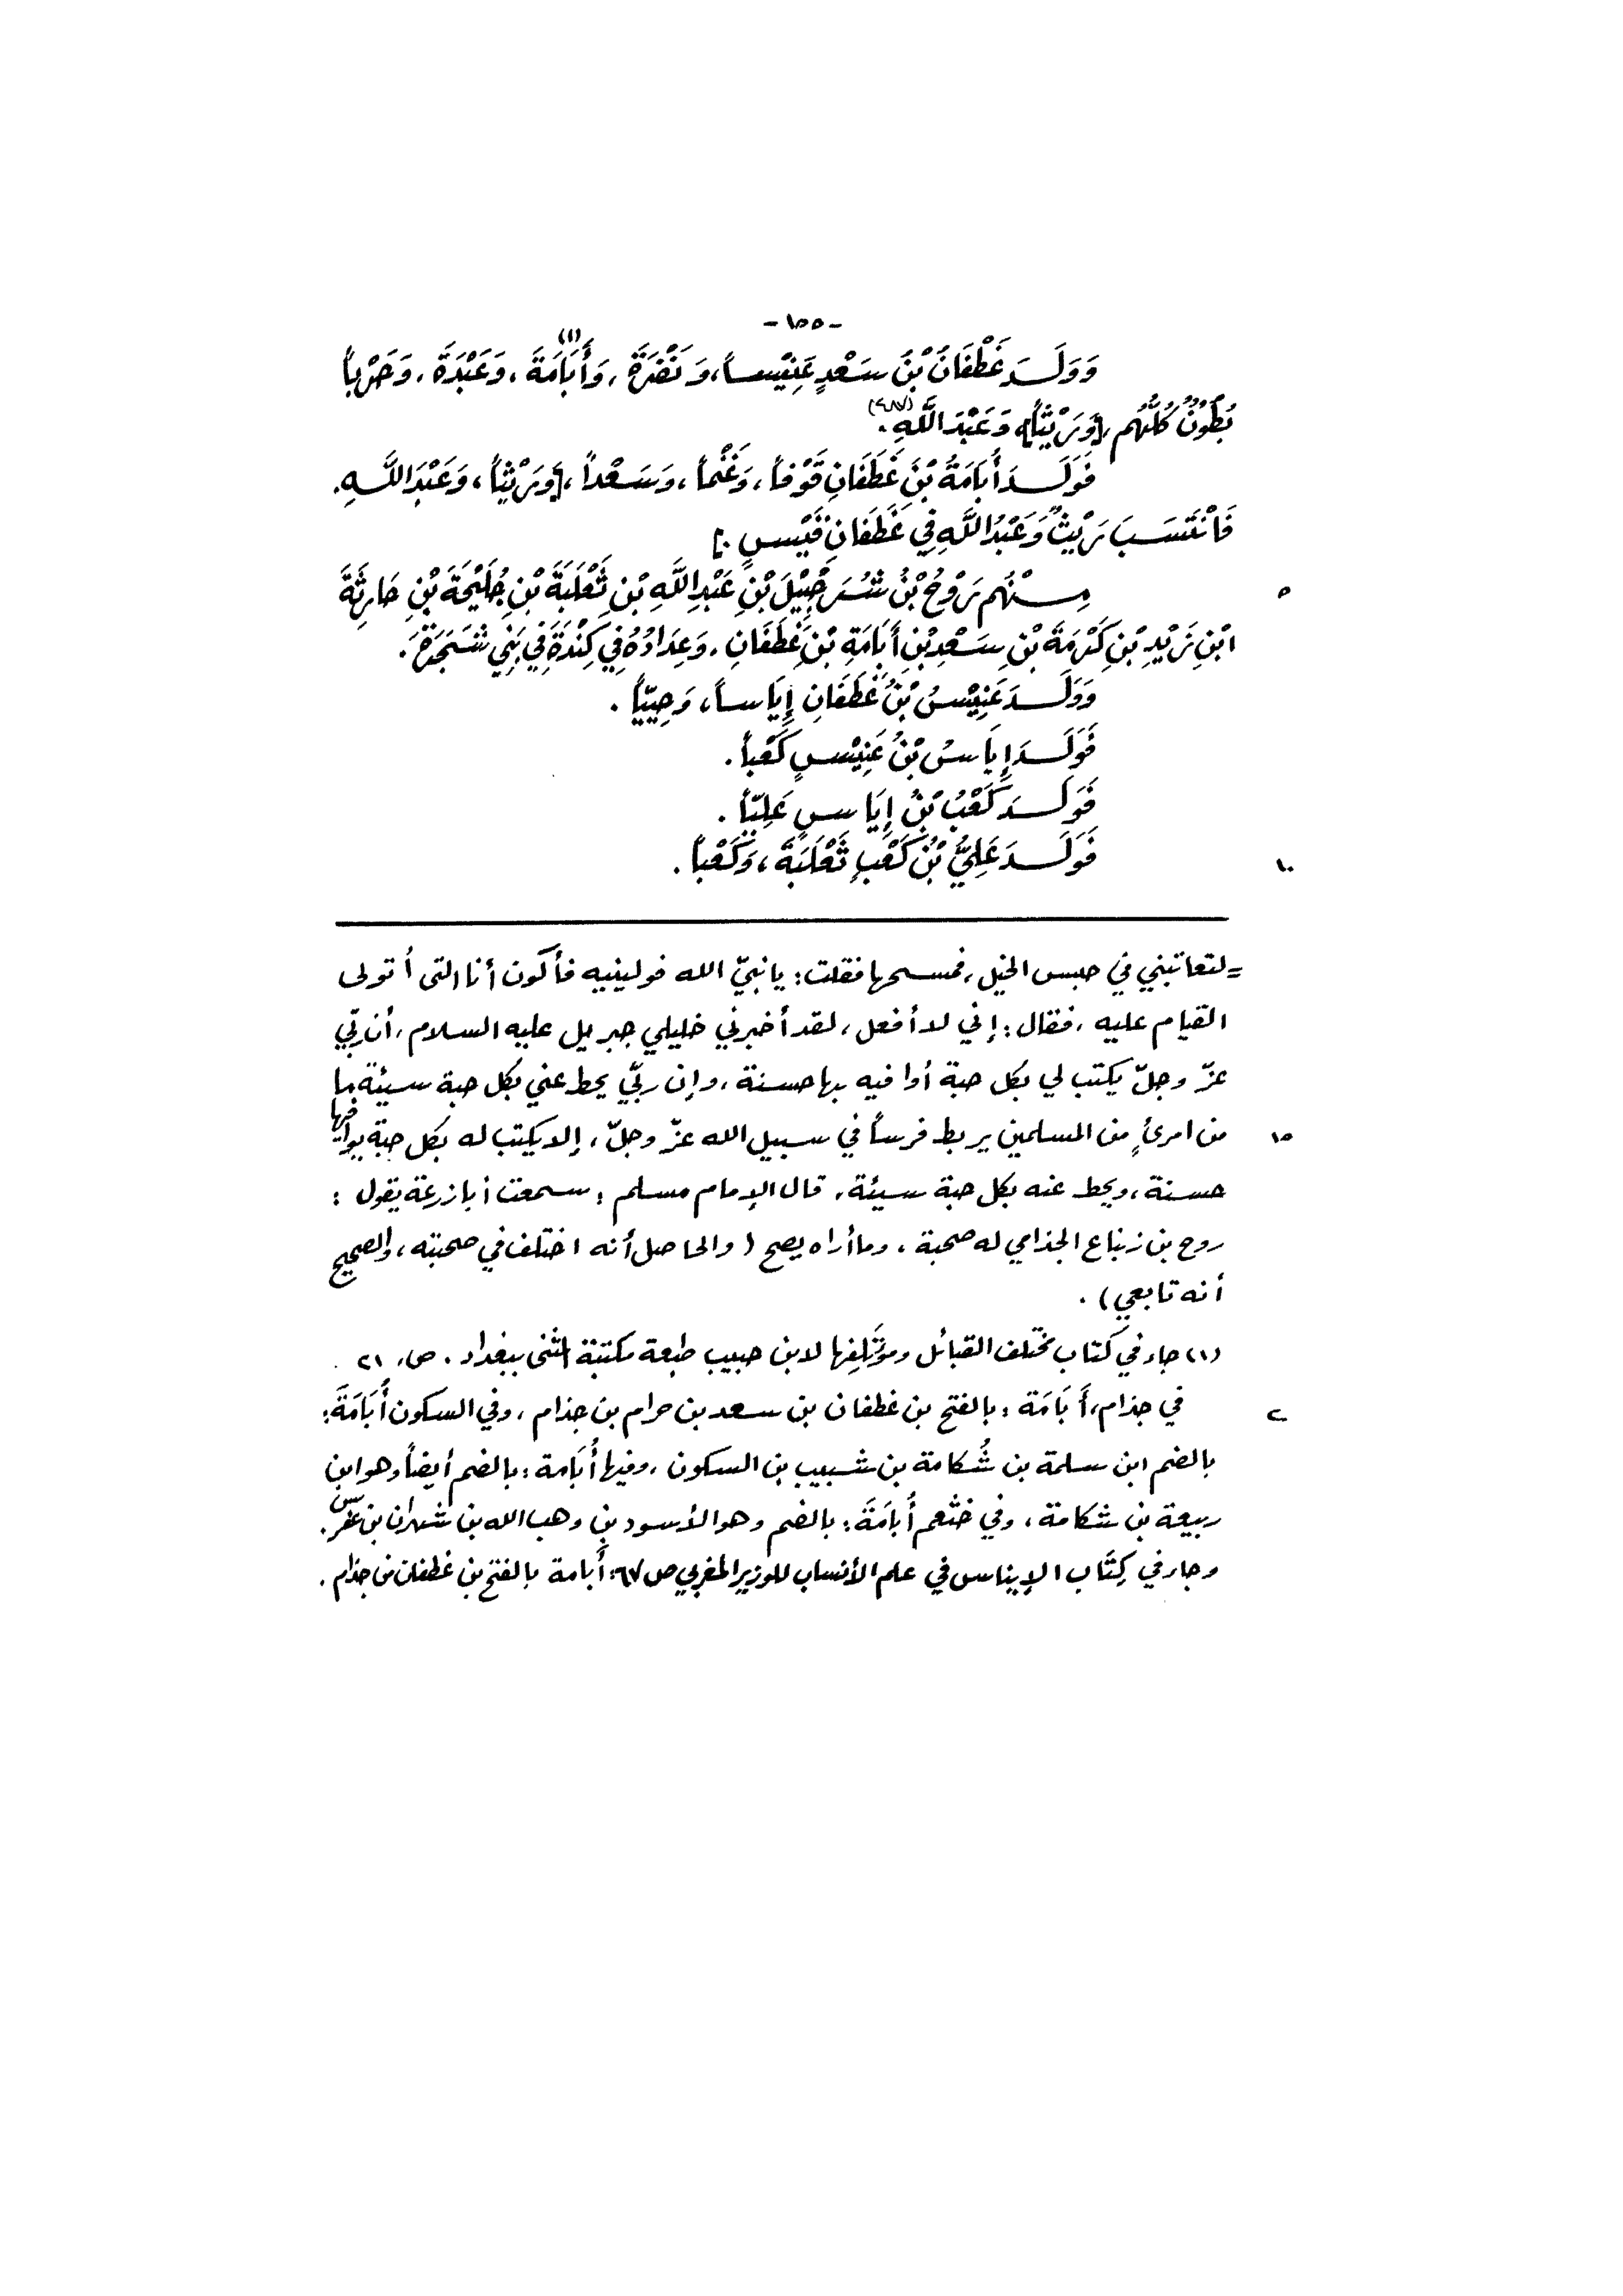 -١٥٥-
وَوَلَدَ غَطْفَانُ بْنُ سَعْدٍ عَنِيْساً، وَنَضْرَةَ، وَأَبَامَةَ(١)، وَعَبْدَةَ، وَحَرْباً
بُطُونٌ كُلُّهُم، [وَرَيْثاً] وَعَبْدَ اللَّهِ(٤٨٧).
فَوَلَدَ أَبَامَةُ بْنُ غَطَفَانِ قَوْفاً، وَغَنْماً، وَسَعْداً، [وَرَيْثاً، وَعَبْدَ اللَّهِ.
فَانْتَسَبَ رَيْثٌ وَعَبْدُ اللَّهِ فِي غَطَفَانِ قَيْسٍ.]
مِنْهُم رَوْحُ بْنُ شُرَحْبِيْلَ بْنِ عَبْدِ اللَّهِ بْنِ ثَعْلَبَةَ بْنِ جُلَيْحَةَ بْنِ حَارِثَةَ
٥
ابْنِ زَيْدِ بْنِ كَرْمَةَ بْنِ سَعْدِ بْنِ أَبَامَةِ بْنِ غَطَفَانِ، وَعِدَادُهُ فِي كِنْدَةَ فِي بَنِي شَجَرَةَ.
وَوَلَدَ عَنِيْسُ بْنُ غَطَفَانِ إِيَاساً، وَحِيَيّاً.
فَوَلَدَ إِيَاسُ بْنُ عَنِيْسٍ كَعْباً.
فَوَلَدَ كَعْبُ بْنُ إِيَاسٍ عَلِيّاً.
فَوَلَدَ عَلِيُّ بْنُ كَعْبٍ ثَعْلَبَةَ، وَكَعْباً.
١٠
= لتعاتبني في حبس الخيل، فمسحها فقلت: يا نبيّ الله فولينيه فأكون أنا التى أتولى
القيام عليه، فقال: إني لا أفعل، لقد أخبرني خليلي جبريل عليه السلام، أن ربّي
عزّ وجلّ يكتب لي بكل حبة أوافيه بها حسنة، وإن ربّي يحط عني بكل حبة سيئة ما
من امرئٍ من المسلمين يربط فرساً في سبيل الله عزّ وجلّ، إلا يكتب له بكل حبة يوافيها
١٥
حسنة، ويحط عنه بكل حبة سيئة، قال الإمام مسلم: سمعت أبا زرعة يقول:
روح بن زنباع الجذامي له صحبة، وما أراه يصح (والحاصل أنه اختلف في صحبته، والصحيح
أنه تابعي).
(١) جاء في كتاب مختلف القبائل ومؤتَلِفها لابن حبيب طبعة مكتبة المثنى ببغداد. ص، ٢١
في جذام، أَبَامَة: بالفتح بن غطفان بن سعد بن حرام بن جذام، وفي السكون أُبَامَةَ:
٢
بالضم ابن سلمة بن شُكامة بن شبيب بن السكون، وفيها أُبَامة: بالضم أيضاً وهو ابن
ربيعة بن شكامة، وفي خثعم أُبامَةَ: بالضم وهو الأسود بن وهب الله بن شهران بن عفرس.
وجاء في كِتَاب الإيناس في علم الأنساب للوزير المغربي ص ٦٧: أَبامة بالفتح بن غطفان من جذام.